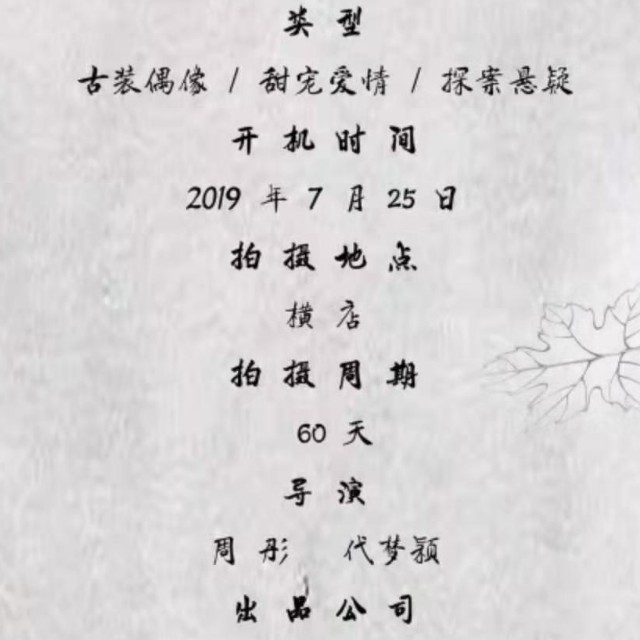 类型
古装偶像 / 甜宠爱情 / 探案悬疑
开机时间
2019 年 7 月 25 日
拍摄地点
横店
拍摄周期
60 天
导演
周彤 代梦颖
出品公司